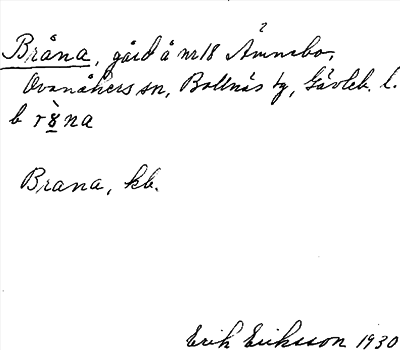 Bråna, gård å nr 18 Ämnebo,
Ovanåkers sn, Bollnäs tg, Gävleb. l.
b r8̀na
Brana, kb.
Erik Eriksson 1930